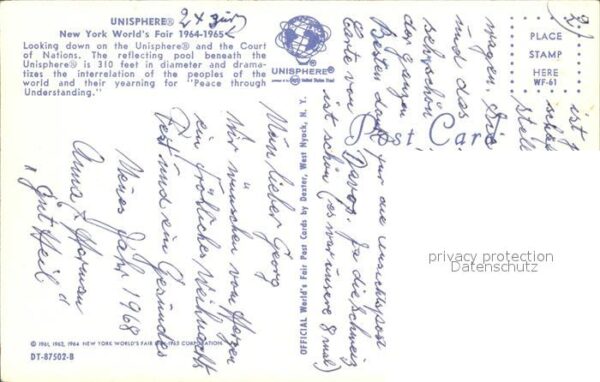 UNISPHERE®
New York World's Fair 1964-1965
Looking down on the Unisphere® and the Court
of Nations. The reflecting pool beneath the
Unisphere® is 310 feet in diameter and drama-
tizes the interrelation of the peoples of the
world and their yearning for "Peace through
Understanding."
UNISPHERE®
PLACE
STAMP
HERE
WF-61
Post Card
OFFICIAL World's Fair Post Cards by Dexter, West Nyack, N. Y.
Mein lieber Georg
Wir wünschen vom Herzen
ein fröhliches Weihnachts
Fest und ein Gesundes
Neues Jahr 1968
Anna & Herman
"Gut Heil"
Besten dank für die Ansichtspost
Karte von Davos. Ja die Schweiz
ist schön (es war unsere 8 mal)
der ganzen
sehr schön
und das
wagen. Die
2)
privacy protection
Datenschutz
© 1961, 1962, 1964 NEW YORK WORLD'S FAIR 1964-1965 CORPORATION
DT-87502-B